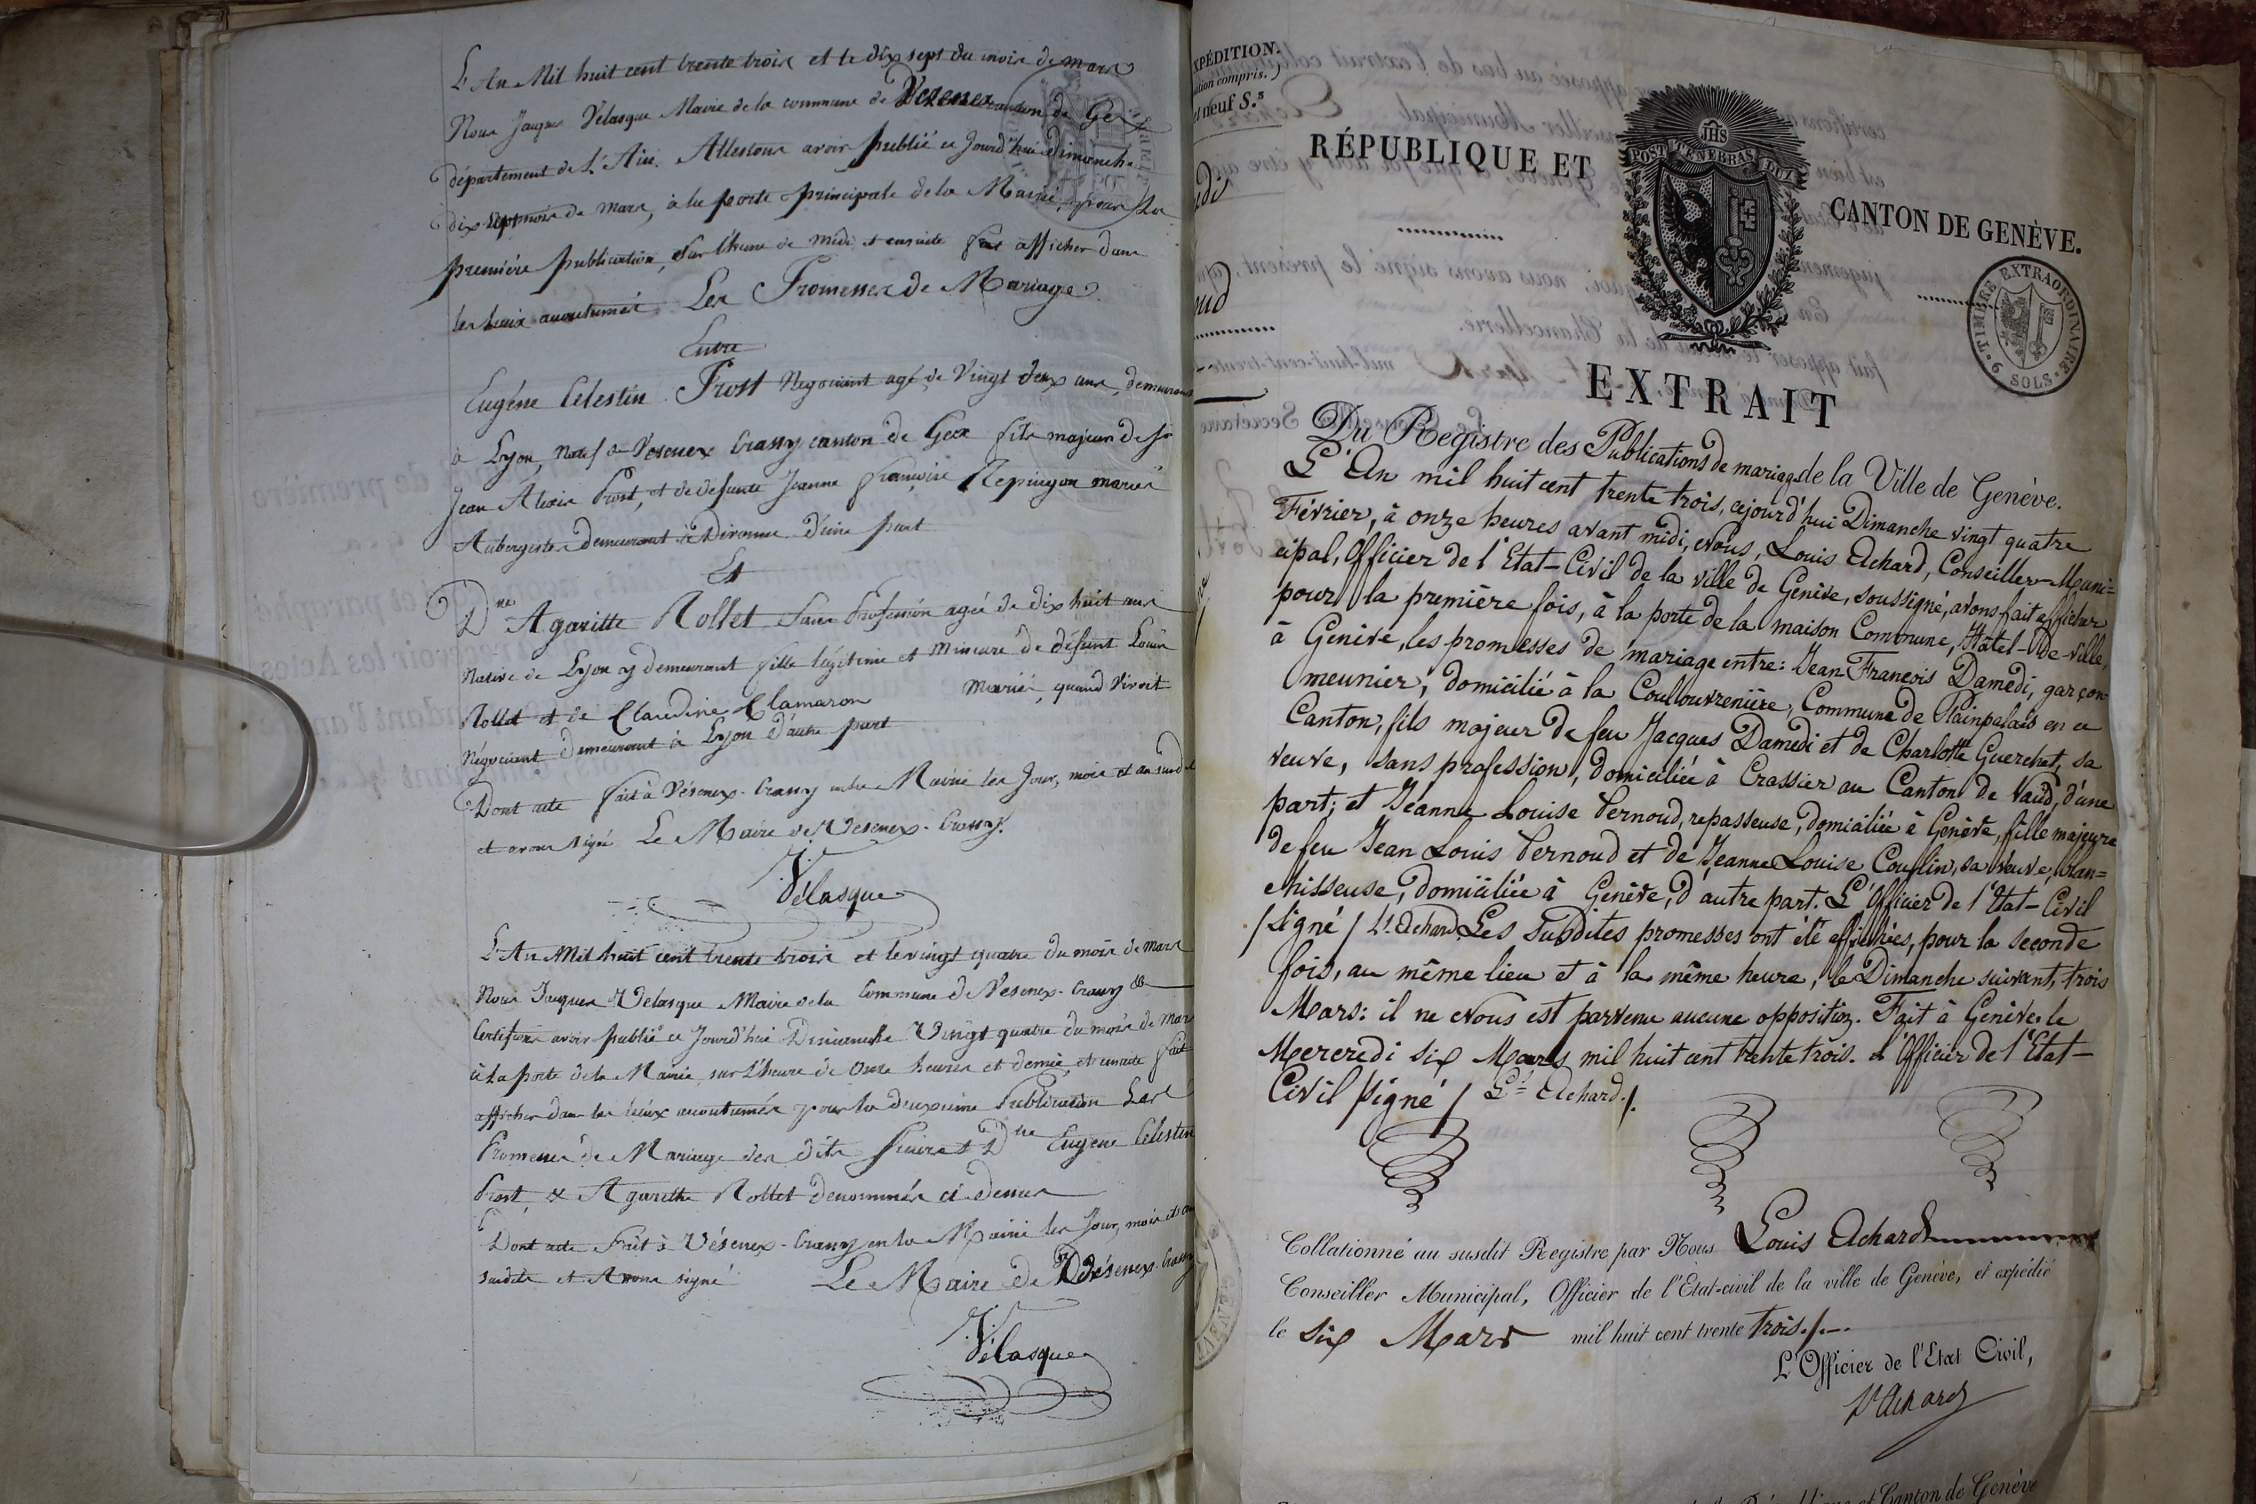 L'An Mil huit cent trente trois et le dix sept du mois de mars
Nous Jaques Vélasque Maire de la commune de Vezenex canton de Gex
département de L'Ain. Attestons avoir publié ce Jourd'hui dimanche
dix sept mois de mars, à la porte principale de la Mairie, pour la
première publication, sur l'heure de midi et ensuite fait afficher dans
les lieux accoutumés Les Promesses de Mariage
Entre
Eugéne Celestin Prost Negociant agé de Vingt deux ans, demeurant
à Lyon, natif de Vesenex Crassy canton de Gex fils majeur de Sr
Jean Alexis Prost, et de defunte Jeanne françoise Repingon mariés
Aubergistes demeurant à Divonne d'une part
Et
Dne Agaritte Rollet Sans Profession agée de dix huit ans
Native de Lyon y demeurant fille légitime et Mineure de défunt Louis
Rollet et de Claudine Clamaron mariés, quand vivoit
Négociant demeurant à Lyon d'autre part
Dont acte fait à Vésenex-Crassy en la Mairie les Jour, mois et an susdit
et avons signé Le Maire de Vesenex-Crassy.
Vélasque
L'An Mil huit cent trente trois et le vingt quatre du mois de mars
Nous Jaques Vélasque Maire de la Commune de Vesenex-Crassy &
Certifions avoir publié ce Jourd'hui Dimanche Vingt quatre du mois de mars
à la porte de la Mairie sur l'heure de Onze heures et demie, et ensuite fait
afficher dans les lieux accoutumés pour la deuxième Publication Les
Promesses de Mariage des dits Sieur et Dne Eugene Celestin
Prost, & Agaritte Rollet denommés ci dessus
Dont acte Fait à Vésenex-Crassy en la Mairie les Jour, mois et an
susdits et Avons signé Le Maire de Vésenex-Crassy
Vélasque
XPÉDITION.
ition compris.)
et neuf S.s
adi
oud
RÉPUBLIQUE ET
CANTON DE GENÈVE.
JHS
POST TENEBRAS LUX
TIMBRE EXTRAORDINAIRE
6 SOLS
EXTRAIT
Du Registre des Publications de mariage de la Ville de Genève.
L'An mil huit cent trente trois, cejourd'hui Dimanche vingt quatre
Février, à onze heures avant midi, Nous, Louis Achard, Conseiller-Muni=
cipal, Officier de l'Etat-Civil de la ville de Genève, soussigné, avons fait afficher
pour la première fois, à la porte de la maison Commune, Hôtel-De-ville,
à Genève, les promesses de mariage entre: Jean François Damedi, garçon
meunier, domicilié à la Coulouvrenière, Commune de Plainpalais en ce
Canton, fils majeur de feu Jacques Damedi et de Charlotte Guerchet, sa
veuve, sans profession, domiciliée à Crassier au Canton de Vaud, d'une
part; et Jeanne Louise Pernoud, repasseuse, domiciliée à Genève, fille majeure
de feu Jean Louis Pernoud et de Jeanne Louise Couplin, sa veuve, blan=
chisseuse, domiciliée à Genève, d'autre part. L'Officier de l'Etat-Civil
/signé/ Ls. Achard. Les susdites promesses ont été affichées, pour la seconde
fois, au même lieu et à la même heure, le Dimanche suivant, trois
Mars: il ne Nous est parvenu aucune opposition. Fait à Genève le
Mercredi six Mars mil huit cent trente trois. L'Officier de l'Etat-
Civil /signé/ Ls. Achard./.
Collationné au susdit Registre par Nous Louis Achard
Conseiller Municipal, Officier de l'Etat-civil de la ville de Genève, et expédié
le six Mars mil huit cent trente trois./.
L'Officier de l'Etat Civil,
Ls Achard
et Canton de Genève